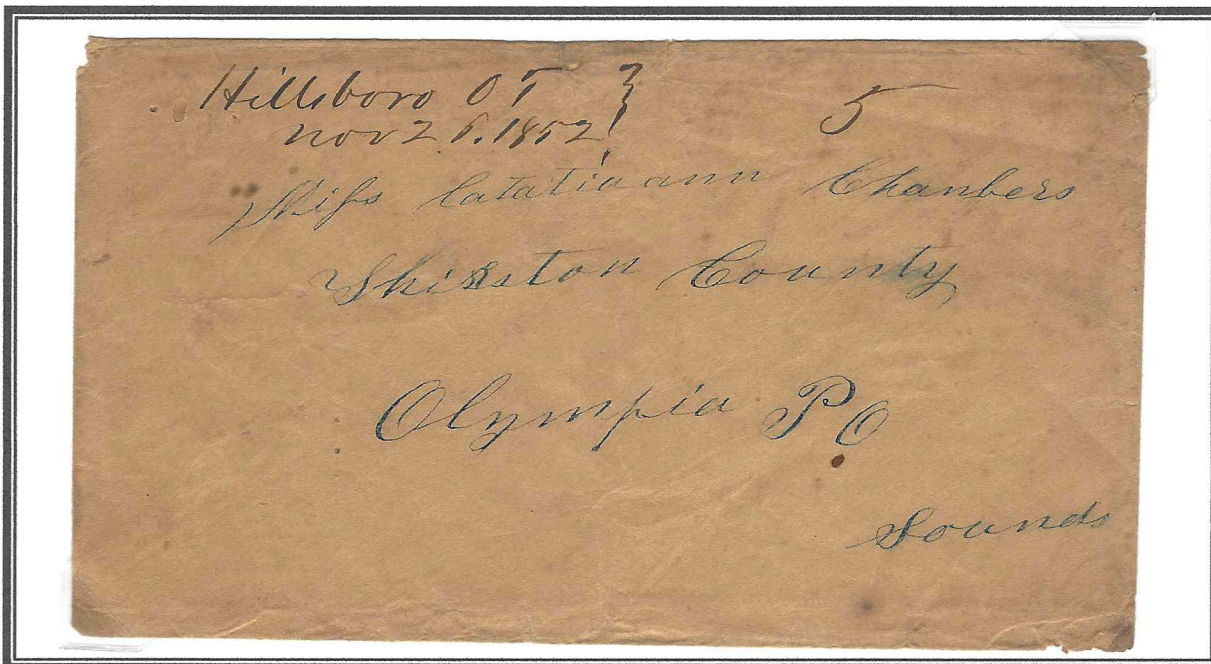 Hillsboro O T } 5
nov 26. 1852
Miſs Catatiaann Chanbers
Thirston County
Olympia P O
Sounds